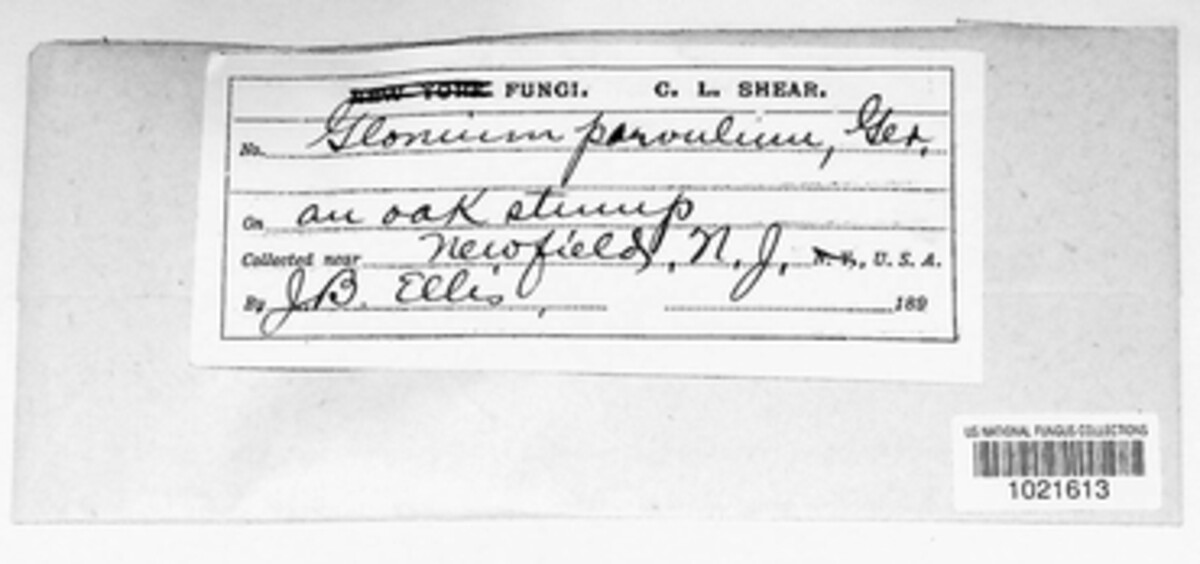 NEW YORK FUNGI. C. L. SHEAR.
No. Glonium parvulum, Ger.
On an oak stump
Collected near Newfield, N. J., N. Y., U. S. A.
By J. B. Ellis, 189
US NATIONAL FUNGUS COLLECTIONS
1021613